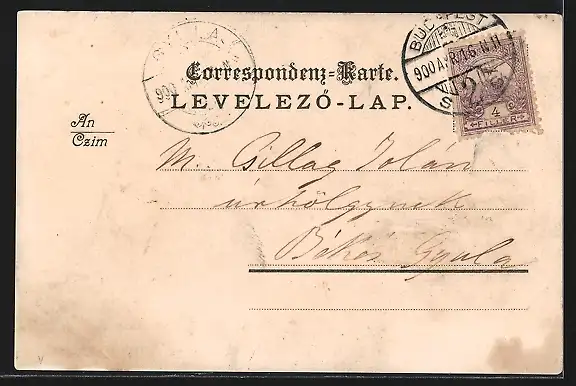 GYULA
900
BUDAPEST
900 ÁPR. 15
4
FILLER
Correspondenz-Karte.
LEVELEZŐ-LAP.
An
Czim
M. Csillag Jolán
úrhölgynek
Békés Gyula